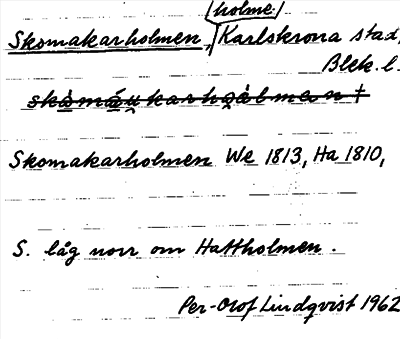 (holme.)
Skomakarholmen, Karlskrona stad,
Blek. l.
Skomakarholmen We 1813, Ha 1810,
S. låg norr om Hattholmen.
Per-Olof Lindqvist 1962